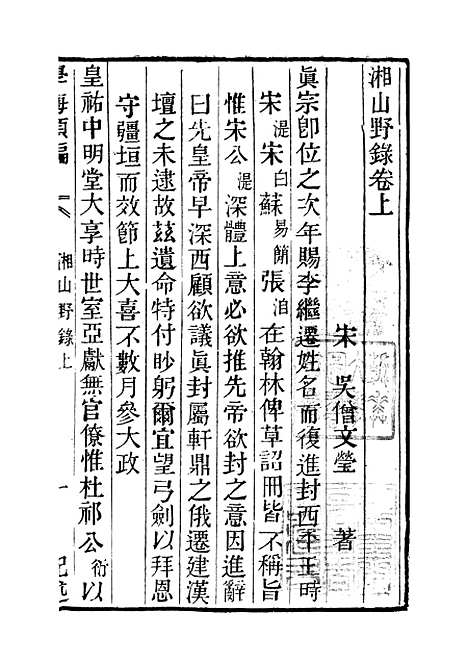 湘山野錄卷上
宋 吳僧文瑩 著
眞宗卽位之次年賜李繼遷姓名而復進封西平王時
宋湜宋白蘇易簡張洎在翰林俾草詔冊皆不稱旨
惟宋公湜深體上意必欲推先帝欲封之意因進辭
曰先皇帝早深西顧欲議眞封屬軒鼎之俄遷建漢
壇之未逮故茲遺命特付眇躬爾宜望弓劍以拜恩
守疆垣而效節上大喜不數月參大政
皇祐中明堂大享時世室亞獻無官僚惟杜祁公衍以
學海類編 湘山野錄上 一 記述